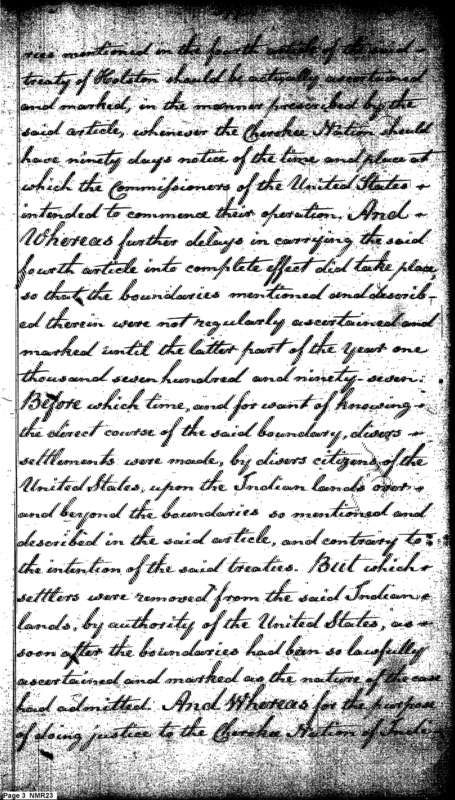 ries mentioned in the fourth article of the said
treaty of Holston should be actually ascertained
and marked, in the manner prescribed by the
said article, whenever the Cherokee Nation should
have ninety days notice of the time and place at
which the Commissioners of the United States
intended to commence their operation. And
Whereas further delays in carrying the said
fourth article into complete effect did take place,
so that the boundaries mentioned and describ-
ed therein were not regularly ascertained and
marked until the latter part of the Year one
thousand seven hundred and ninety-seven:
Before which time, and for want of knowing
the direct course of the said boundary, divers
settlements were made, by divers citizens of the
United States, upon the Indian lands over
and beyond the boundaries so mentioned and
described in the said article, and contrary to
the intention of the said treaties. But which
settlers were removed from the said Indian
lands, by authority of the United States, as
soon after the boundaries had been so lawfully
ascertained and marked as the nature of the case
had admitted. And Whereas for the purpose
of doing justice to the Cherokee Nation of Indi
Page 3 NMR23